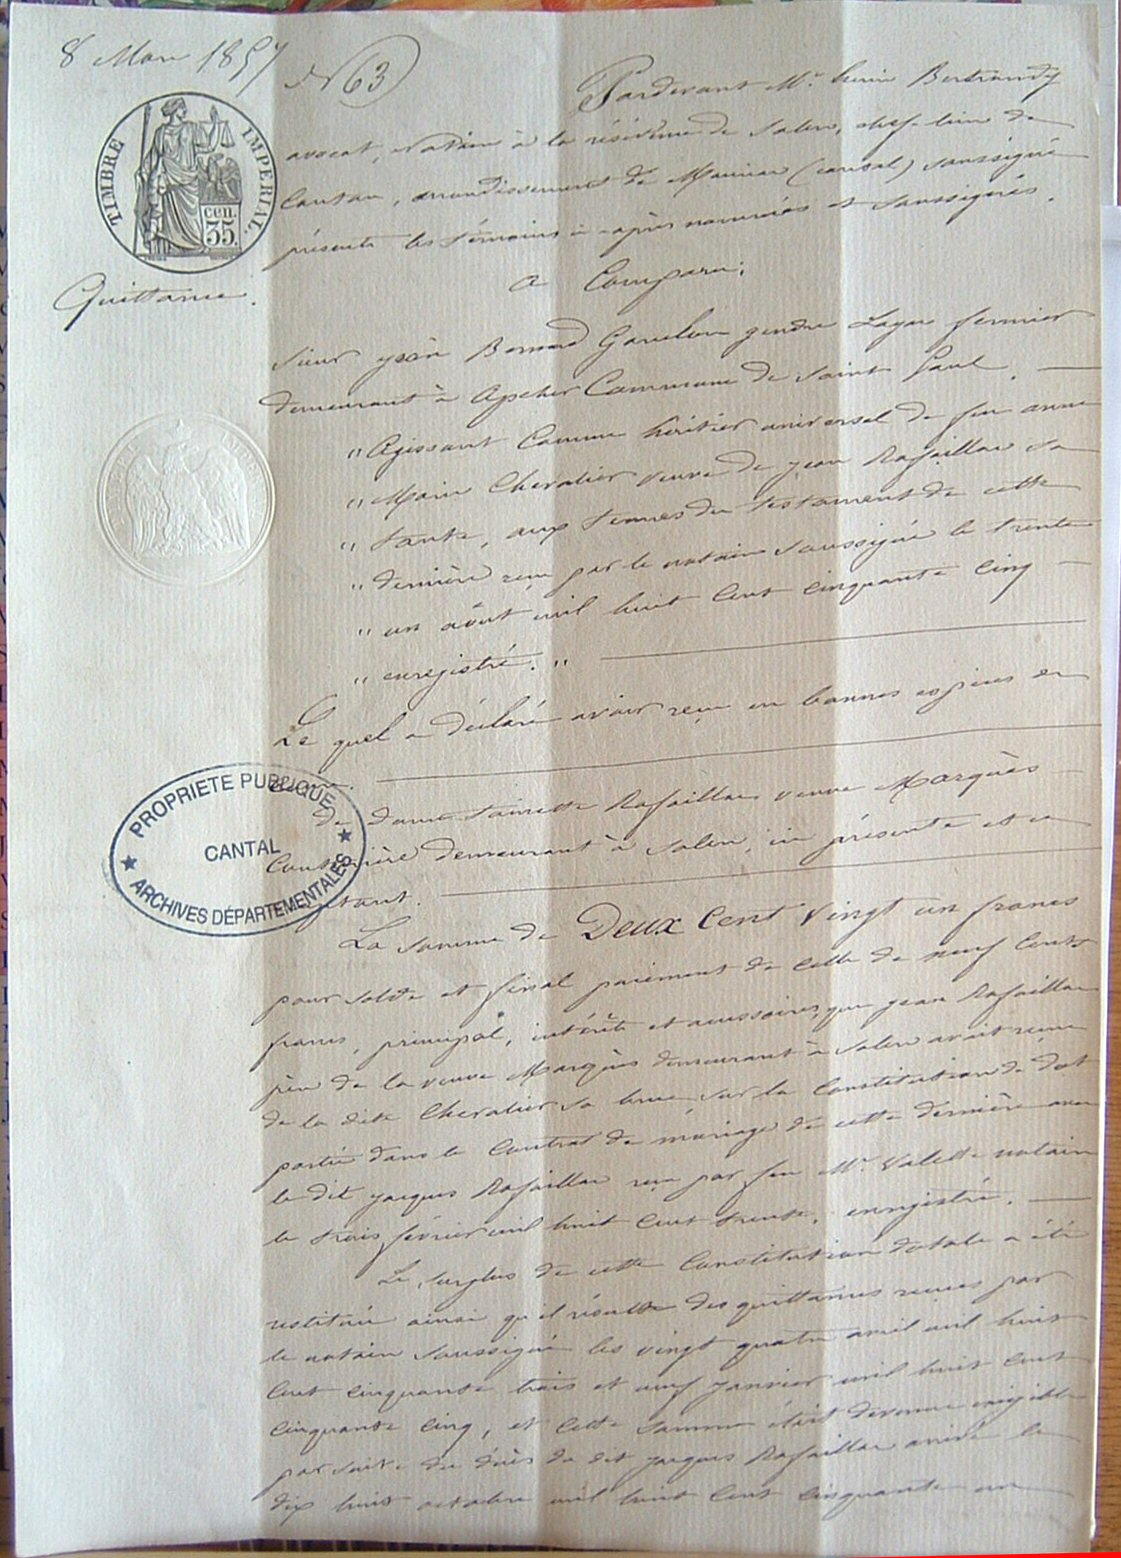 8 Mars 1857
N 63
TIMBRE IMPERIAL.
cen.
35.
Quittance.
Pardevant Me. Bertrandy
avocat, notaire à la résidence de Salers, chef-lieu de
Canton, arrondissement de Mauriac (cantal) soussigné
présents les témoins ci-après nommés et soussignés.
a Comparu:
Sieur jean Bernard gendre fermier
demeurant à Apcher Commune de Saint Paul.
" Agissant Comme héritier universel de feu anne
" Marie Chevalier veuve de jean Rafaillac sa
" tante, aux termes du testament de cette
" dernière reçu par le notaire soussigné le trente
" un août mil huit cent cinquante cinq
" enregistré. "
Le quel a déclaré avoir reçu en bonnes espèces en
PROPRIETE PUBLIQUE
CANTAL
ARCHIVES DÉPARTEMENTALES
de dame Rafaillac veuve Marquès
demeurant à Salers, ici présente et
La somme de Deux Cent Vingt un francs
pour solde et final paiement de celle de neuf Cents
francs, principal, intérêts et accessoires, que jean Rafaillac
père de la veuve Marquès demeurant à Salers avait reçue
de la dite Chevalier sa bru, sur la Constitution de dot
portée dans le Contrat de mariage de cette dernière avec
le dit jacques Rafaillac reçu par feu Me. Valette notaire
le trois février mil huit Cent trente, enregistré.
Le surplus de cette Constitution dotale a été
restitué ainsi qu'il résulte des quittances reçues par
le notaire soussigné les vingt quatre avril mil huit
Cent cinquante trois et neuf janvier mil huit cent
cinquante cinq, et cette somme était devenue exigible
par suite du décès du dit jacques Rafaillac arrivé le
dix huit octobre mil huit Cent cinquante un